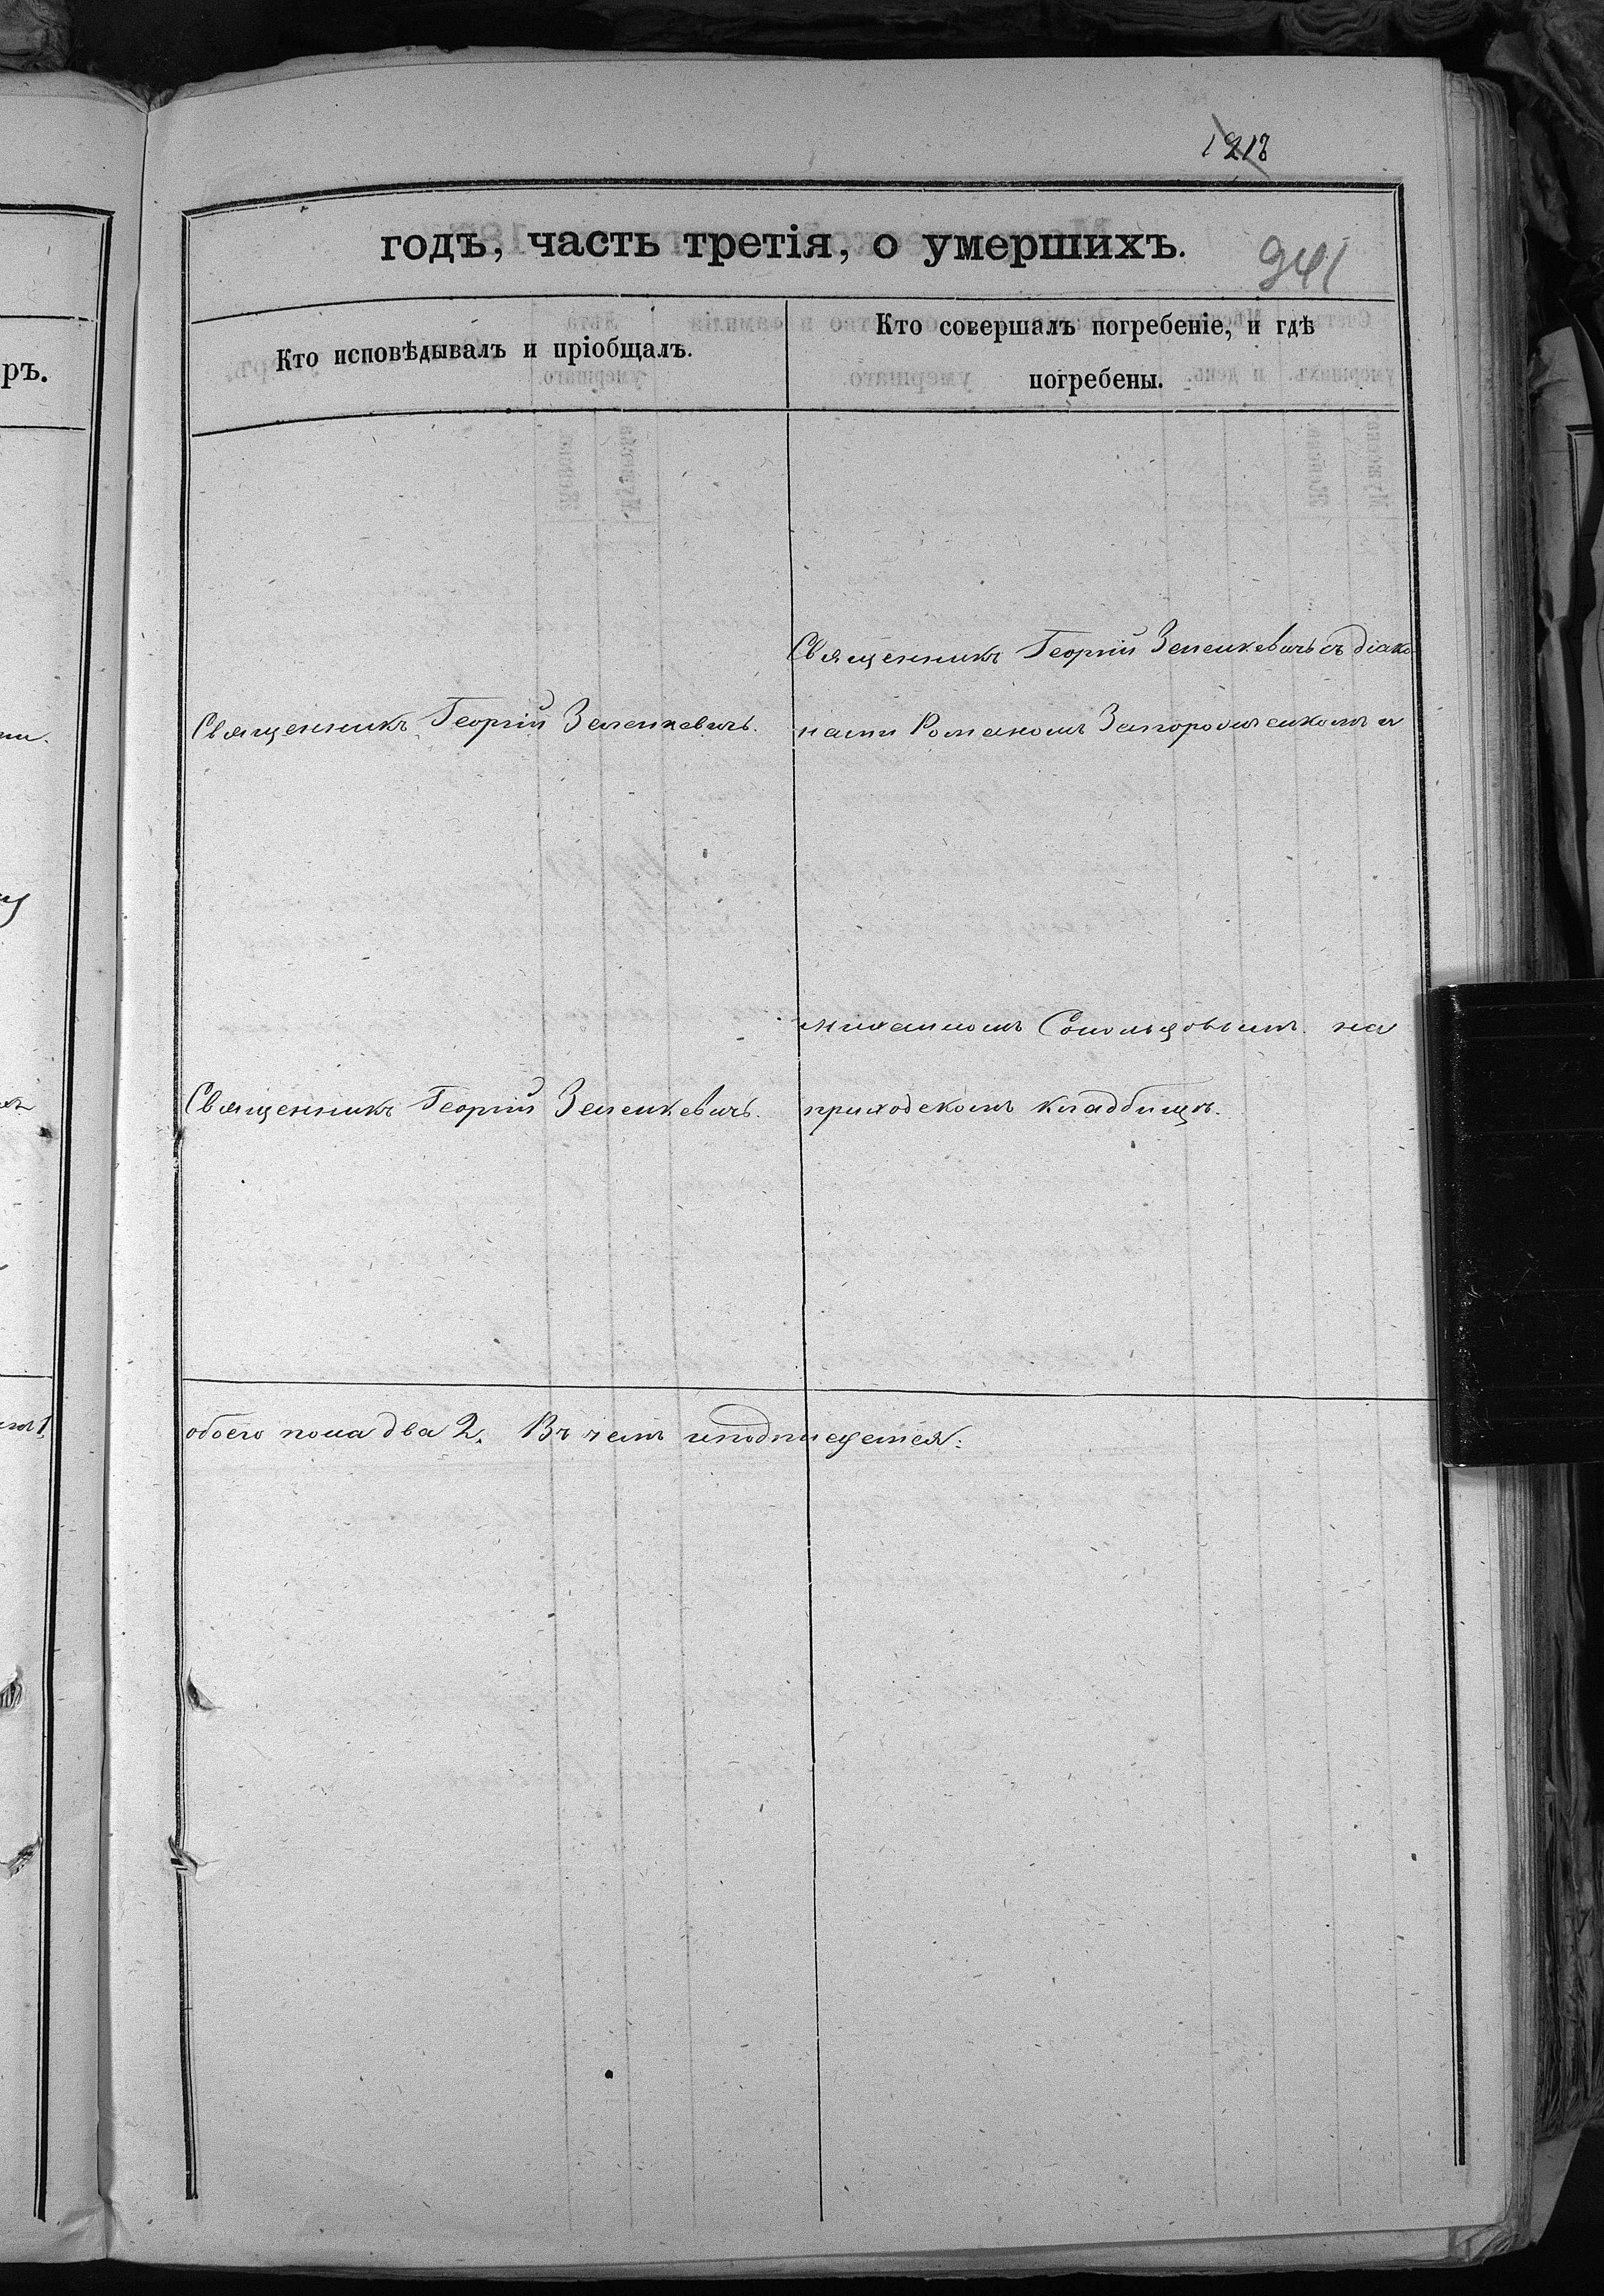 1218
годъ, часть третія, о умершихъ.
941
Кто исповѣдывалъ и пріобщалъ.
Кто совершалъ погребеніе, и гдѣ
погребены.
ръ.
Священникъ Георгій Зеленкевичъ съ діако
Священникъ Георгій Зеленкевичъ.
нами Романомъ Запорожскомъ и
Михаиломъ Сокольцовымъ на
Священникъ Георгій Зеленкевичъ.
приходскомъ кладбищѣ.
обоего пола два 2. Въ чемъ и подписуемся: